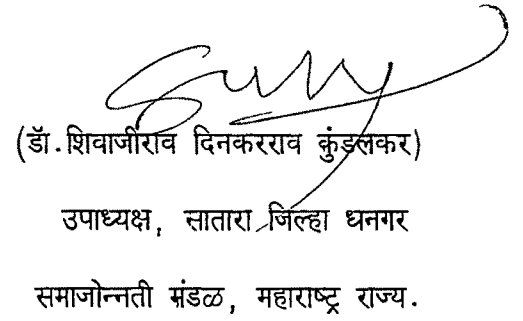 (डॉ.शिवाजीराव दिनकरराव कुंडलकर)
उपाध्यक्ष, सातारा जिल्हा धनगर
समाजोन्नती मंडळ, महाराष्ट्र राज्य.